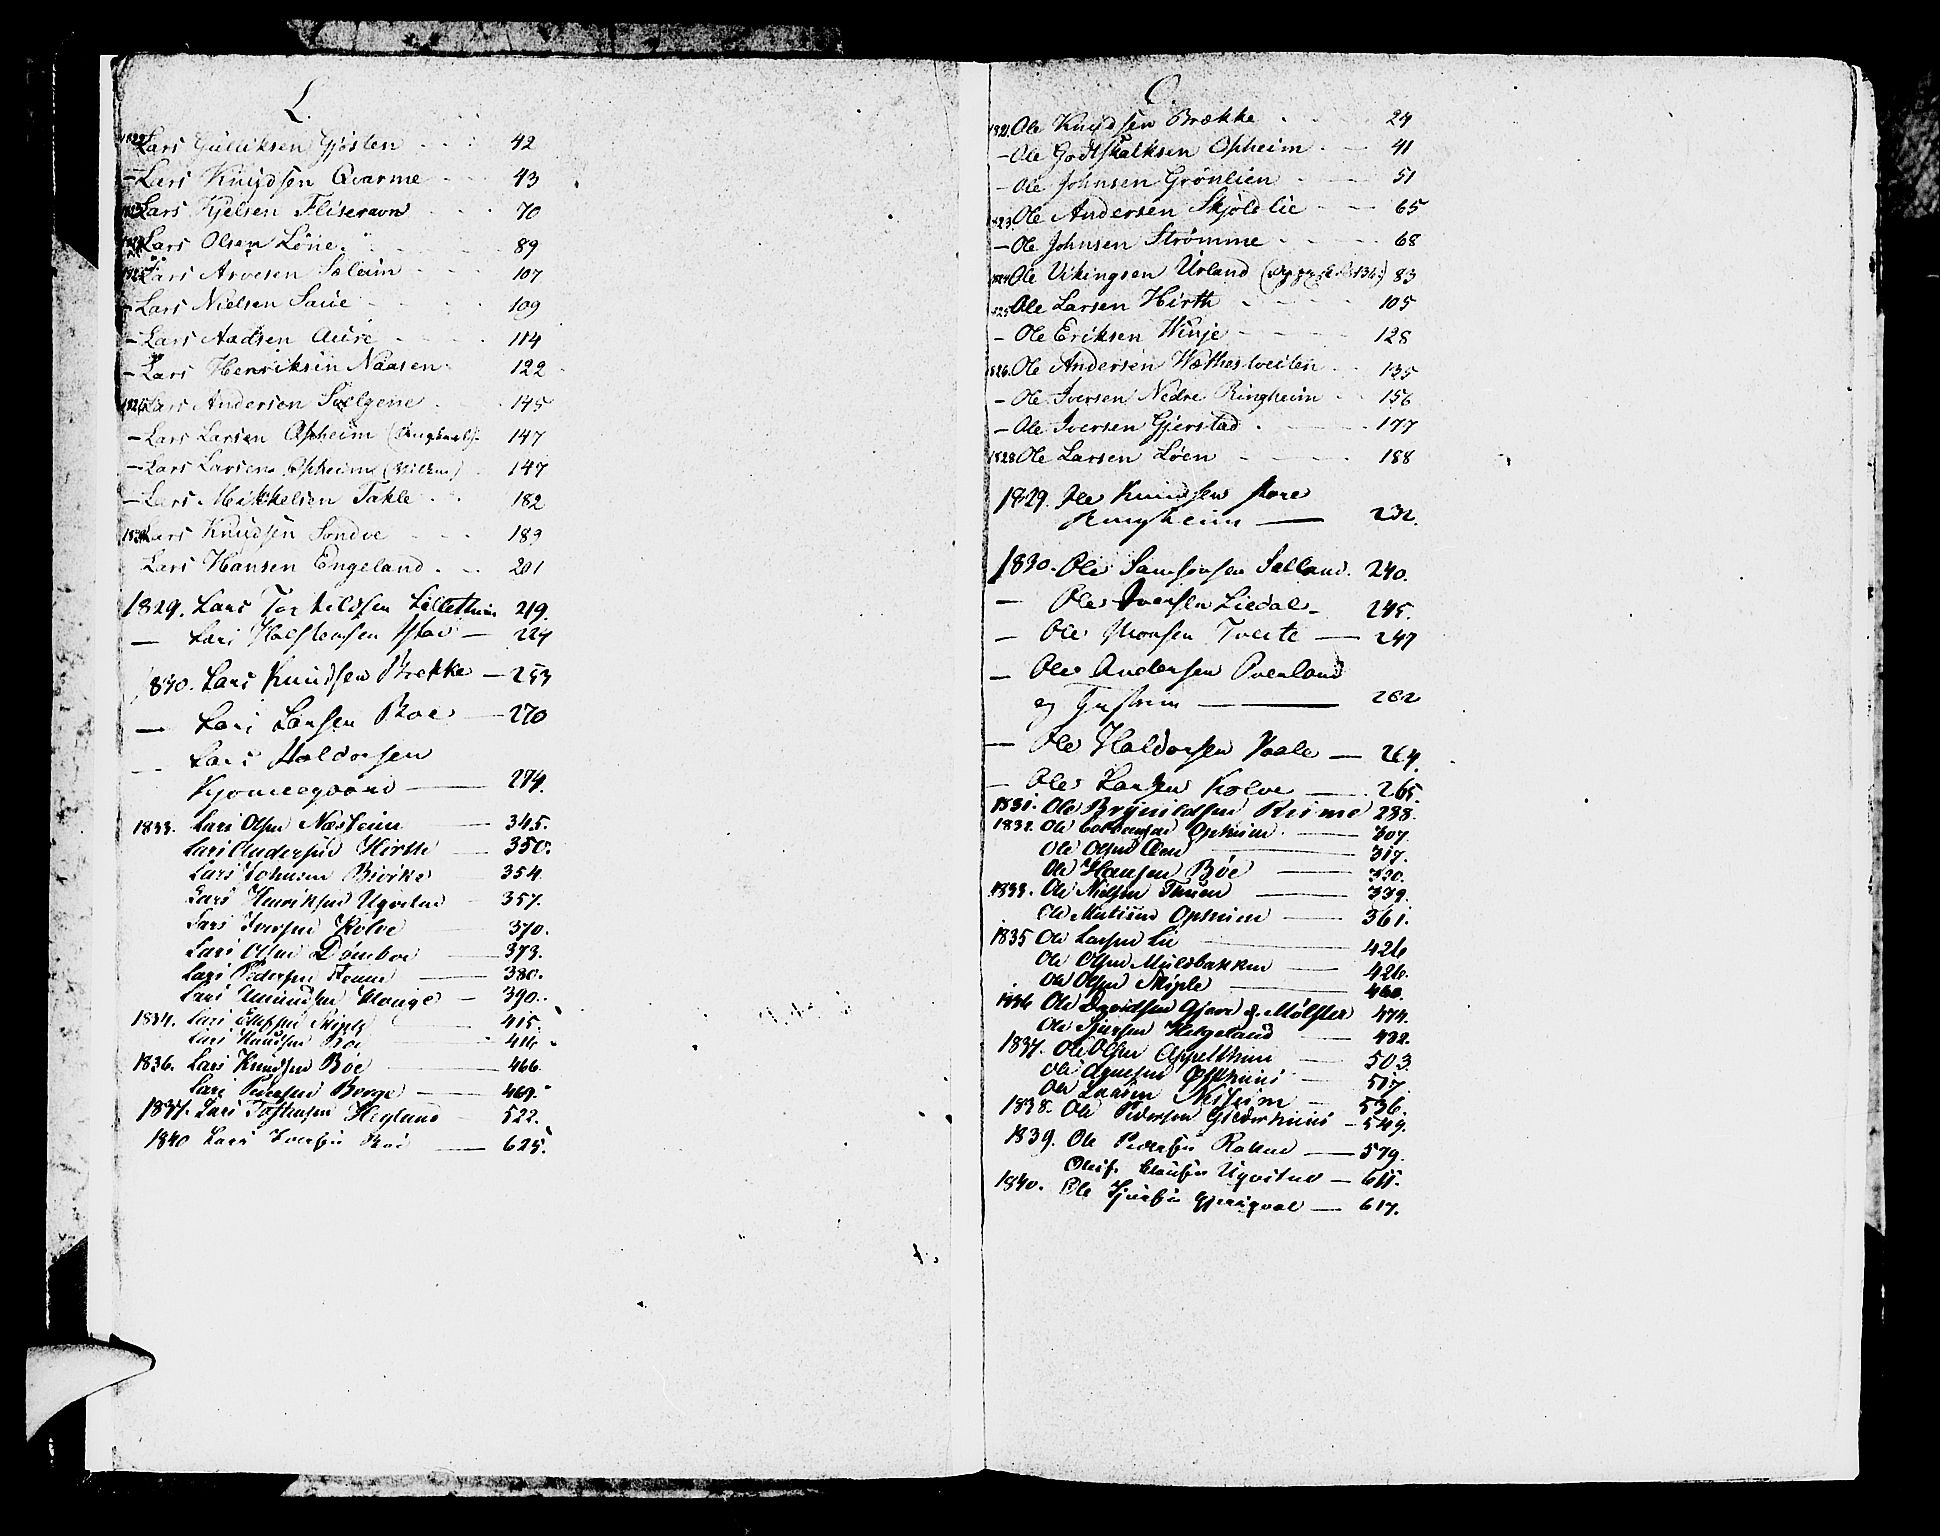 L.
Lars Gulliksen Gjosten 42
- Lars Knudsen Qvarme 43
Lars Kjelsen Fliseram 70
Lars Olsen Löne 89
Lars Arvesen Sæleim 107
- Lars Nielsen Saue 109
- Lars Aadsen Aure 114
- Lars Henriksen Naasen 122
Lars Andersen Sælgene 145
- Lars Larsen Opheim 147
- Lars Larsen Opheim 147
- Lars Mikkelsen Takle 182
Lars Knudsen Sondve 189
Lars Hansen Engeland 201
1829. Lars Torkildsen Lillethun 219.
— Lars Halstensen — 224
1830. Lars Knudsen Brekke — 253
— Lars Larsen Boe — 270
— Lars Haldorsen
— 274.
1833. Lars Olsen Næsheim 345.
Lars Andersen Hirth 350.
Lars Johnsen Biörke 354.
Lars Henriksen Ugvitne 357.
Lars Iversen Kölve 370.
Lars Olsen 373.
Lars Pedersen 380.
Lars Amundsen Hauge — 390.
1834. Lars Skiple 415.
Lars Knudsen Böe 416
1836. Lars Knudsen Böe 466.
Lars Pedersen Borge 469.
1837. Lars Tostensen Heglund 522.
1840 Lars Iversen — 625.
O.
Ole Knudsen Brække 24
- Ole Godtskalksen Opheim 41
- Ole Johnsen Grönlien 51
Ole Andersen Skjoldlie 65
- Ole Johnsen Strømme 68
Ole Vikingsen Urland 83
Ole Larsen Hirth 105
- Ole Eriksen Winje 128
1826. Ole Andersen Wæthestveiten 135
- Ole Iversen Nedre Ringheim 156
- Ole Iversen Gjerstad 177
1828 Ole Larsen Löen 188
1829. Ole Knudsen store
Ringheim — 232.
1830. Ole Samsonsen Selland. 240.
— Ole Iversen Liedal 245.
— Ole Monsen Tveite — 247
— Ole Andersen Overland
og — 262
— Ole Haldorsen — 264.
— Ole Larsen Kolve — 265.
1831. Ole Brynildsen Reime 288.
1832. Ole Opheim 307.
Ole Olsen 317.
Ole Hansen Böe 330.
1833. Ole Nielsen Thuen 339.
Ole Opheim — 361.
1835 Ole Larsen Lie 426
Ole Olsen Mulsbakken — 426.
Ole Olsen Skiple 460.
1836 Ole Davidsen Gjerre & Mölster 474.
Ole Sjursen Helgeland 482.
1837. Ole Olsen Appelthun — 503.
Ole 517.
Ole Larsen — 536.
1838. Ole Pedersen Gilderhuus — 549.
1839. Ole Pedersen — 579.
Ugvitne — 611.
1840. Ole Sjursen — 617.